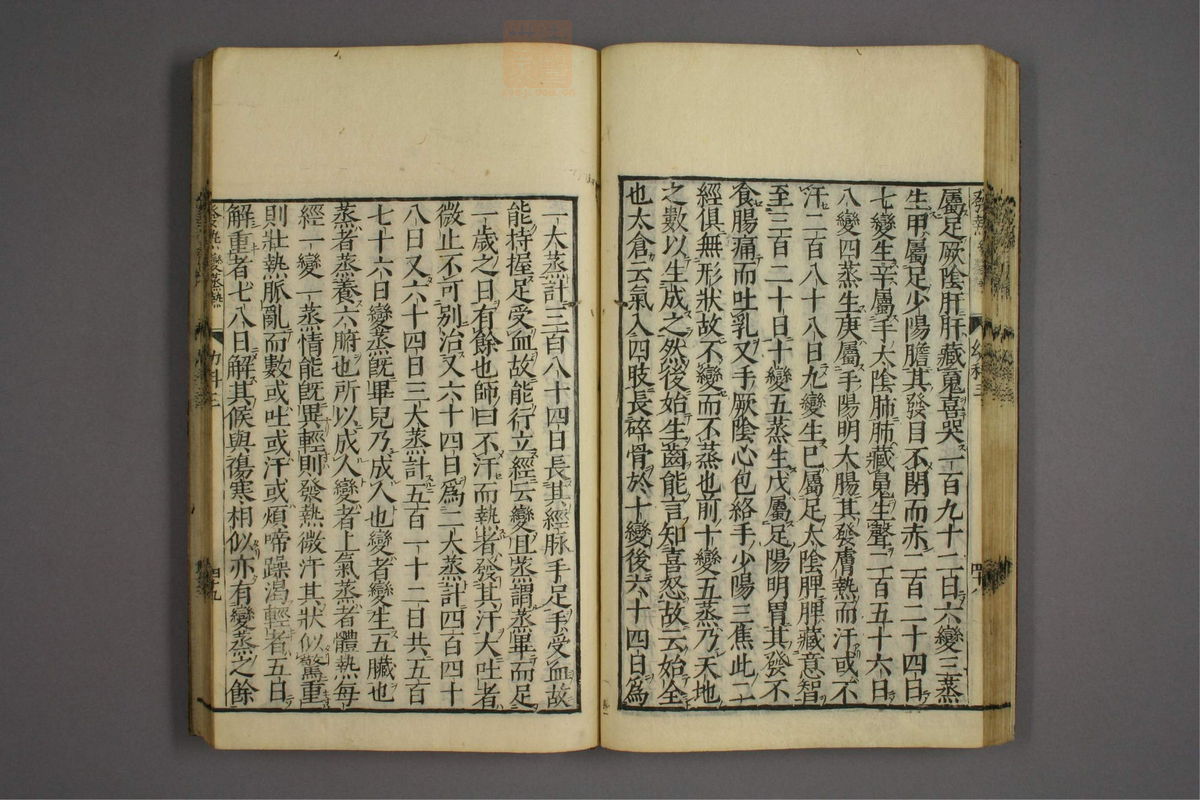 屬足厥陰肝肝藏䰟喜哭一百九十二日六變三蒸
生甲屬足少陽膽其發目不閉而赤二百二十四日
七變生辛屬手太陰肺肺藏魄生聲二百五十六日
八變四蒸生庚屬手陽明大腸其發膚熱而汗或不
汗二百八十八日九變生巳屬足太陰脾脾藏意智
至三百二十日十變五蒸生戊屬足陽明胃其發不
食腸痛而吐乳又手厥陰心包絡手少陽三焦此二
經俱無形狀故不變而不蒸也前十變五蒸乃天地
之數以生成之然後始生齒能言知喜怒故云始全
也太倉云氣入四肢長碎骨於十變後六十四日爲
一大蒸計三百八十四日長其經脉手足手受血故
能持握足受血故能行立經云變且蒸謂蒸畢而足
一歲之日有餘也師曰不汗而熱者發其汗大吐者
微止不可别治又六十四日爲二大蒸計四百四十
八日又六十四日三大蒸計五百一十二日共五百
七十六日變蒸旣畢兒乃成人也變者變生五臟也
蒸者蒸養六腑也所以成人變者上氣蒸者體熱每
經一變一蒸情能旣異輕則發熱微汗其狀似驚重
則壯熱脈亂而數或吐或汗或煩啼躁渴輕者五日
解重者七八日解其候與傷寒相似亦有變蒸之餘
發熱 變蒸熱 幼科三 四九